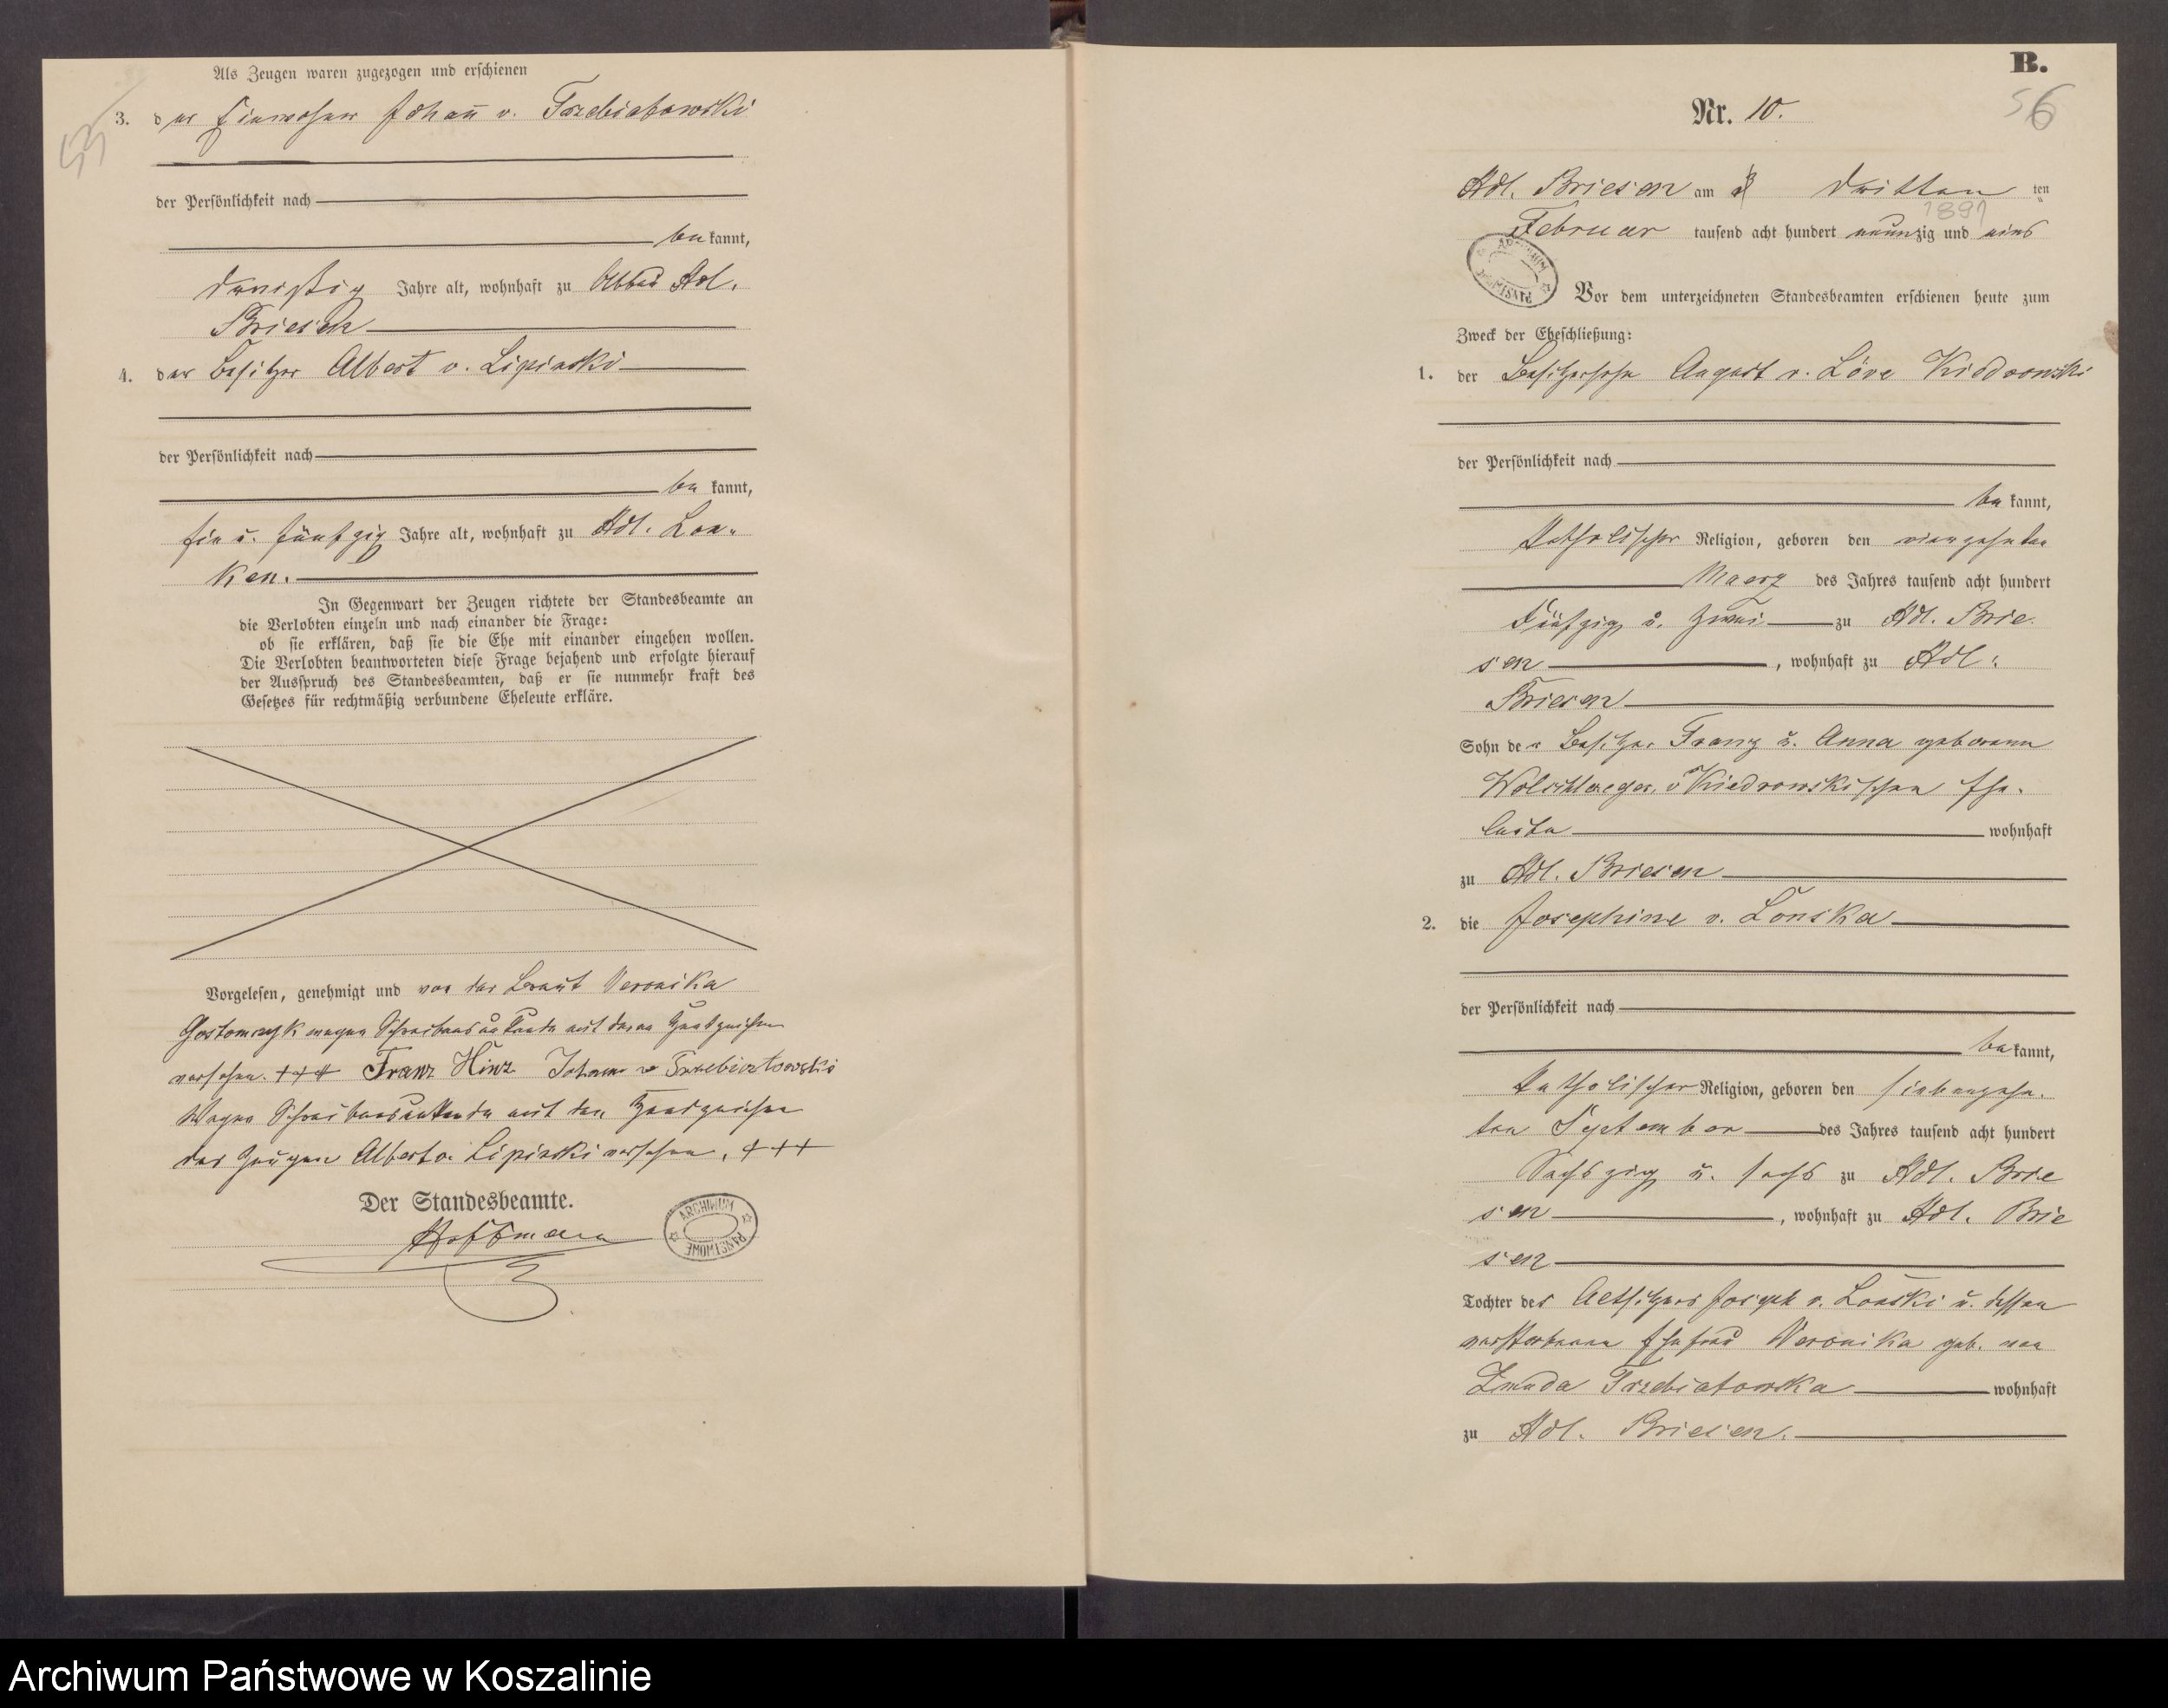 Als Zeugen waren zugezogen und erschienen
3. der Einwohner Johann v. Trzebiatowski
der Persönlichkeit nach
bekannt,
dreißig Jahre alt, wohnhaft zu Adl.
Briesen
4. der Besitzer Albert v. Lipinski
der Persönlichkeit nach
bekannt,
ein u. fünfzig Jahre alt, wohnhaft zu Adl. Lon-
ken.
In Gegenwart der Zeugen richtete der Standesbeamte an
die Verlobten einzeln und nach einander die Frage:
ob sie erklären, daß sie die Ehe mit einander eingehen wollen.
Die Verlobten beantworteten diese Frage bejahend und erfolgte hierauf
der Ausspruch des Standesbeamten, daß er sie nunmehr kraft des
Gesetzes für rechtmäßig verbundene Eheleute erkläre.
Vorgelesen, genehmigt und von der Braut Veronika
Gostomczyk wegen Schreibensunkunde mit deren Handzeichen
versehen. +++ Franz Hinz Johann v Trzebiatowski
Wegen Schreibensunkunde mit den Handzeichen
des Zeugen Albert v. Lipinski versehen. +++
Der Standesbeamte.
Hoffmann
ARCHIWUM PAŃSTWOWE
B.
56
Nr. 10.
Adl. Briesen am dritten ten
1891
Februar tausend acht hundert neunzig und eins
ARCHIWUM PAŃSTWOWE
Vor dem unterzeichneten Standesbeamten erschienen heute zum
Zweck der Eheschließung:
1. der Besitzersohn August v. Löve Kiedrowski
der Persönlichkeit nach
bekannt,
katholischer Religion, geboren den vierzehnten
Maerz des Jahres tausend acht hundert
Fünfzig u. zwei zu Adl. Brie-
sen, wohnhaft zu Adl.
Briesen
Sohn der Besitzer Franz u. Anna geborenen
Wolschlaeger, v Kiedrowskischen Ehe-
leute wohnhaft
zu Adl. Briesen
2. die Josephine v. Lonska
der Persönlichkeit nach
bekannt,
katholischer Religion, geboren den siebenzehn-
ten September des Jahres tausend acht hundert
Sechszig u. sechs zu Adl. Brie
sen, wohnhaft zu Adl. Brie
sen
Tochter des Altsitzers Joseph v. Lonski u. dessen
verstorbenen Ehefrau Veronika geb. von
Zmuda Trzebiatowska wohnhaft
zu Adl. Briesen.
Archiwum Państwowe w Koszalinie